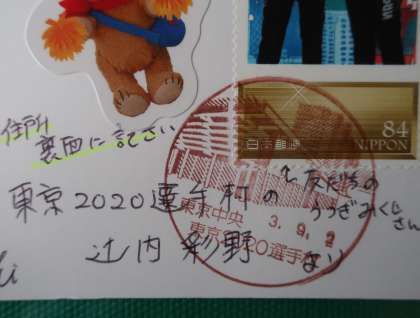 84
日本郵便
NIPPON
住所
裏面に記さい
東京2020選手村の
と友だちの
うつざみくじ
さん
辻内 彩野 より
東京中央
3. 9. 2
東京2020選手村